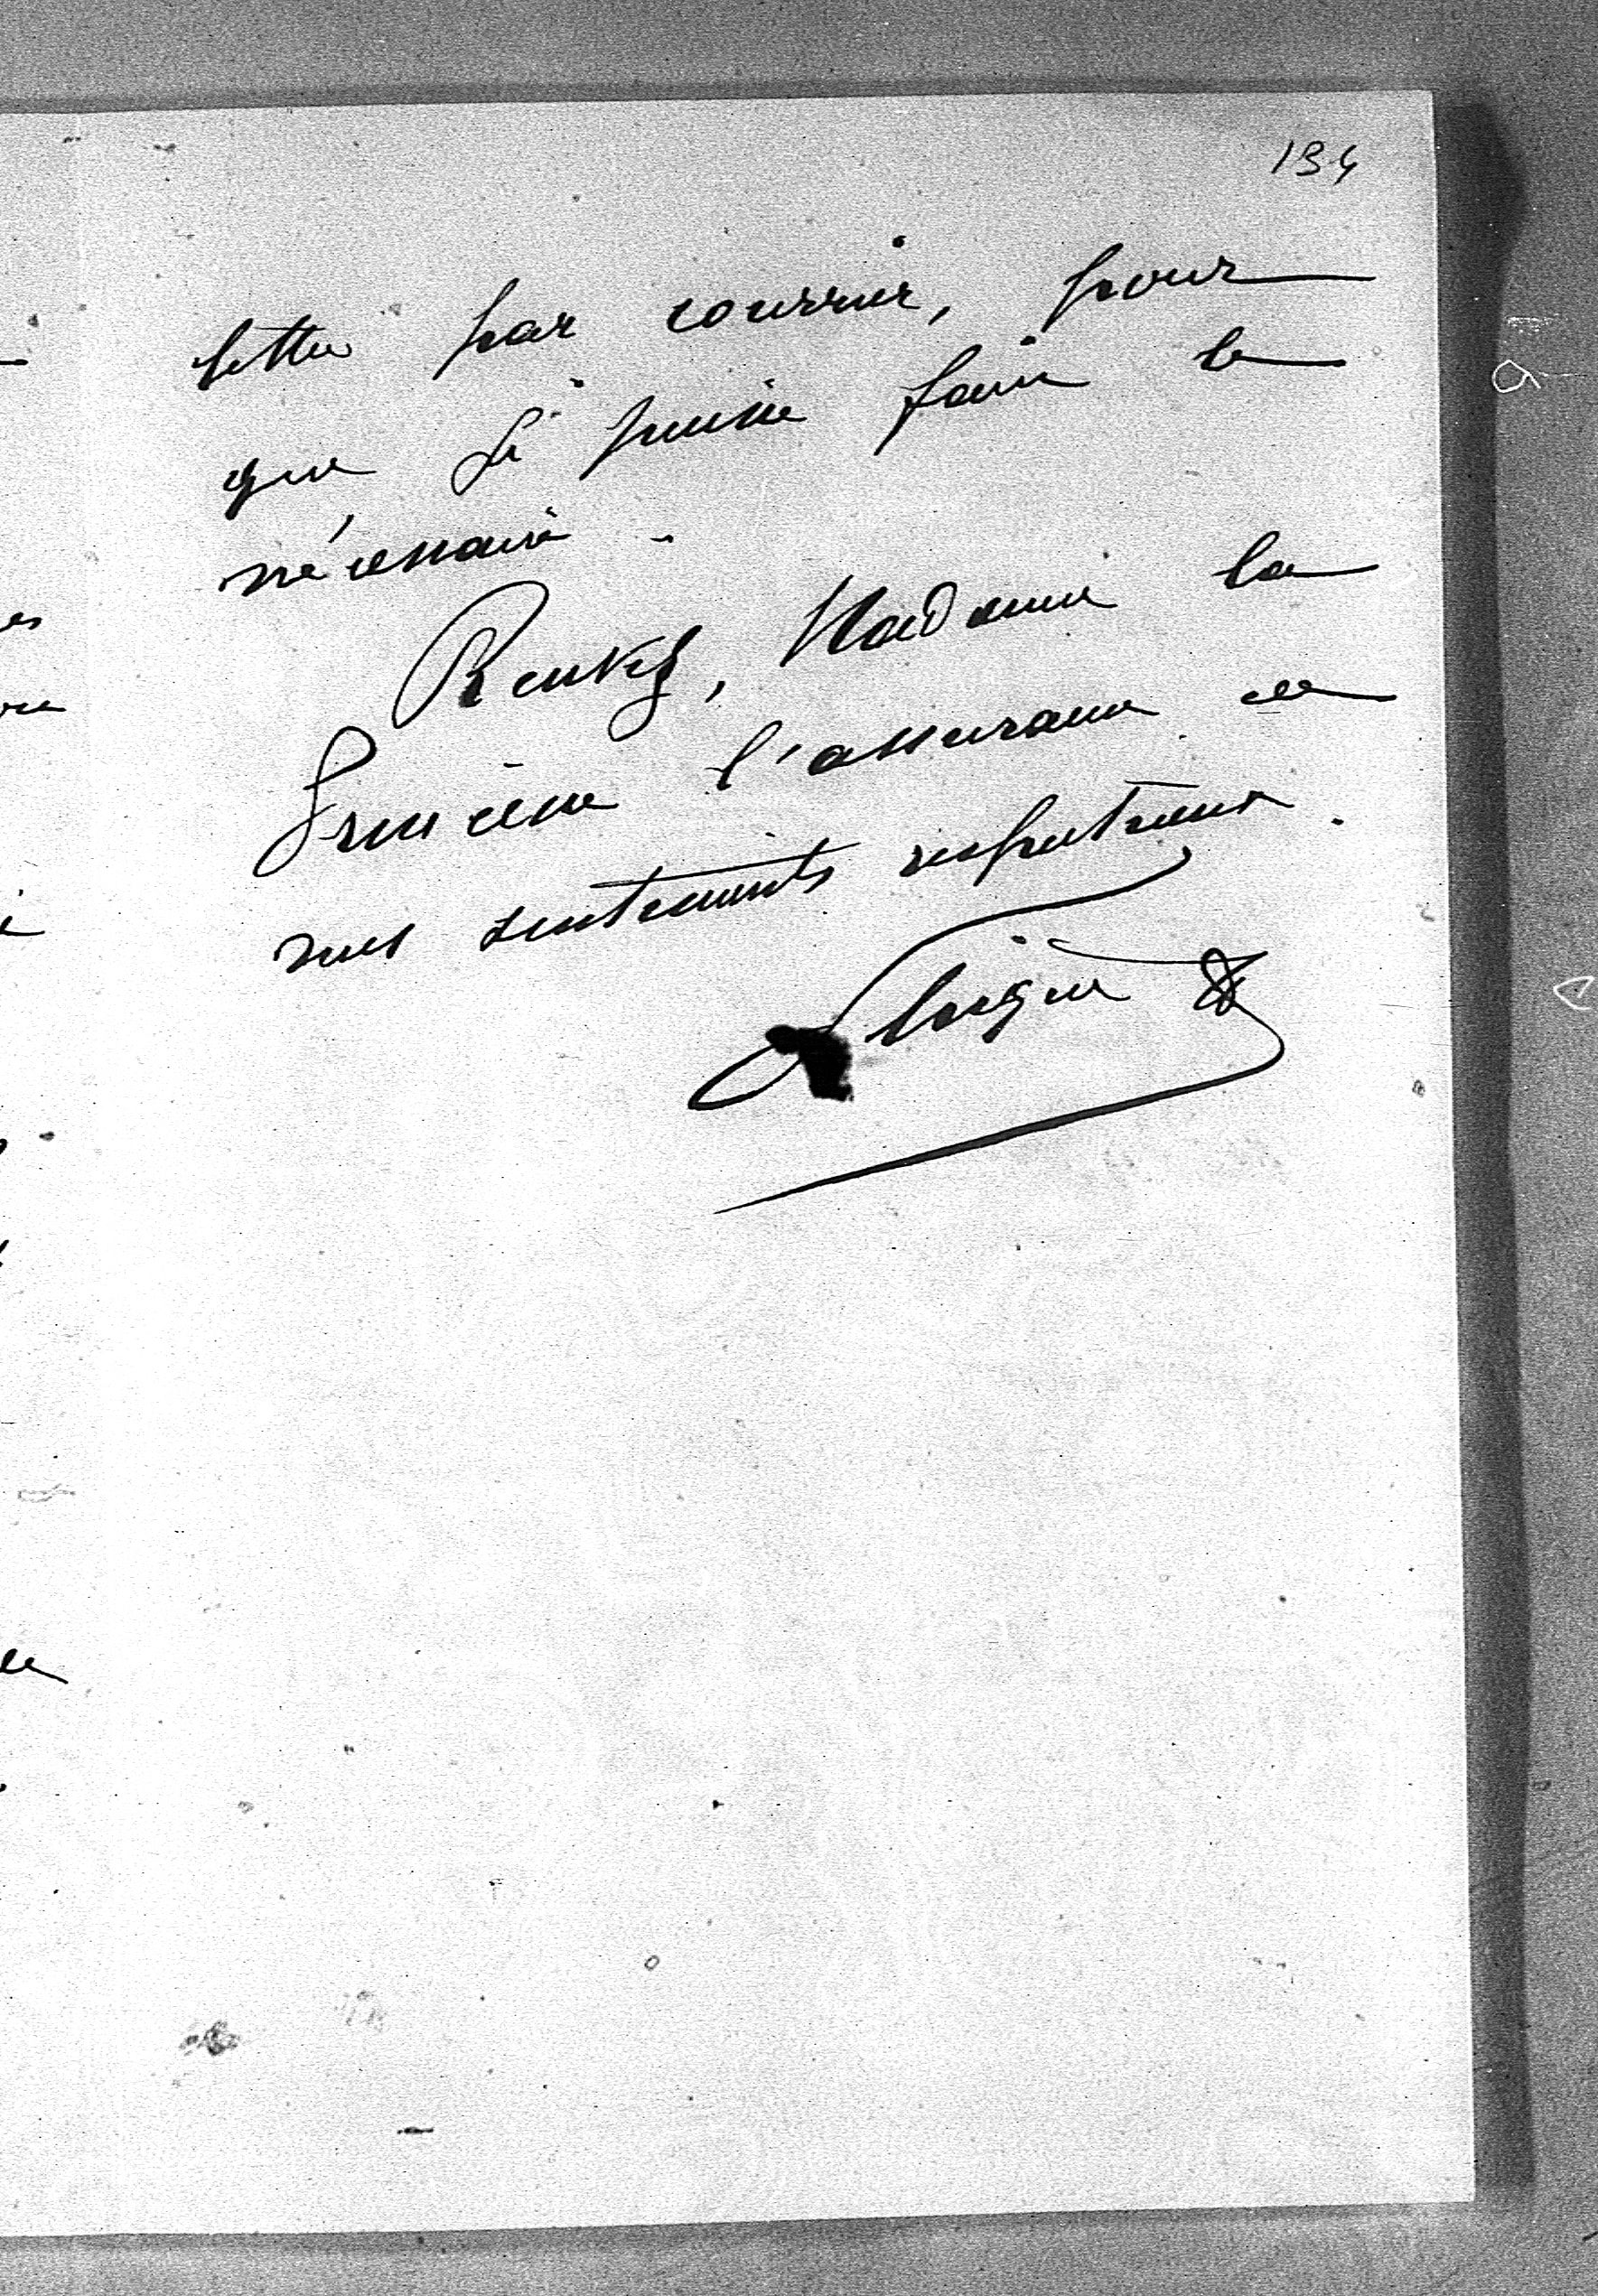 134
lettre par courrier, pour
que je puisse faire le
nécessaire.
Recevez, Madame la
Princesse l'assurance de
mes sentiments respectueux.